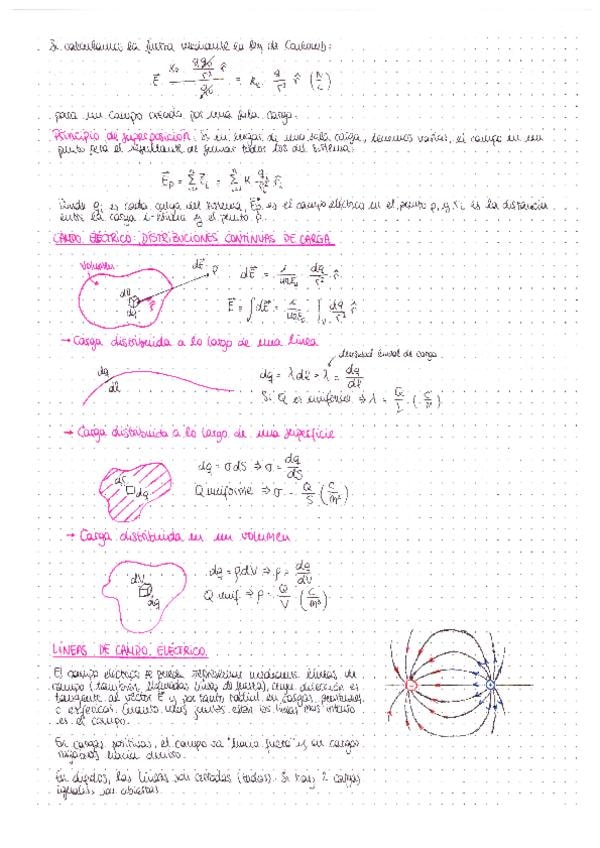 Si calculamos la fuerza mediante la ley de Coulomb:
E = K₀ qq₀/r² r̂ / q₀ = K₀ q/r² r̂ (N/C)
para un campo creado por una sola carga.
Principio de superposición: Si en lugar de una sola carga, tenemos varias, el campo en un
punto será el resultante de sumar todos los del sistema:
E⃗p = Σ E⃗i = Σ K qi/ri² r̂i
Donde qi es cada carga del sistema, E⃗p es el campo eléctrico en el punto p, y ri es la distancia
entre la carga i-ésima y el punto p.
CAMPO ELÉCTRICO: DISTRIBUCIONES CONTINUAS DE CARGA
volumen
dE⃗
P
dV
dq
r⃗
dE⃗ = 1/4πε₀ dq/r² r̂
E⃗ = ∫dE⃗ = 1/4πε₀ ∫v dq/r² r̂
→ Carga distribuida a lo largo de una línea
densidad lineal de carga
dq
dl
dq = λ dl ⇒ λ = dq/dl
Si Q es uniforme ⇒ λ = Q/L (C/m)
→ Carga distribuida a lo largo de una superficie
dS
dq
dq = σ dS ⇒ σ = dq/dS
Q uniforme ⇒ σ = Q/S (C/m²)
→ Carga distribuida en un volumen
dV
dq
dq = ρ dV ⇒ ρ = dq/dV
Q unif ⇒ ρ = Q/V (C/m³)
LÍNEAS DE CAMPO ELÉCTRICO
El campo eléctrico se puede representar mediante líneas de
campo (también llamadas líneas de fuerza), cuya dirección es
tangente al vector E⃗ y por tanto radial en cargas puntuales
o esféricas. Cuanto más juntas estén las líneas más intenso
es el campo.
En cargas positivas, el campo va "hacia fuera" y en cargas
negativas hacia dentro.
En dipolos, las líneas son cerradas (todas). Si hay 2 cargas
iguales, son abiertas.